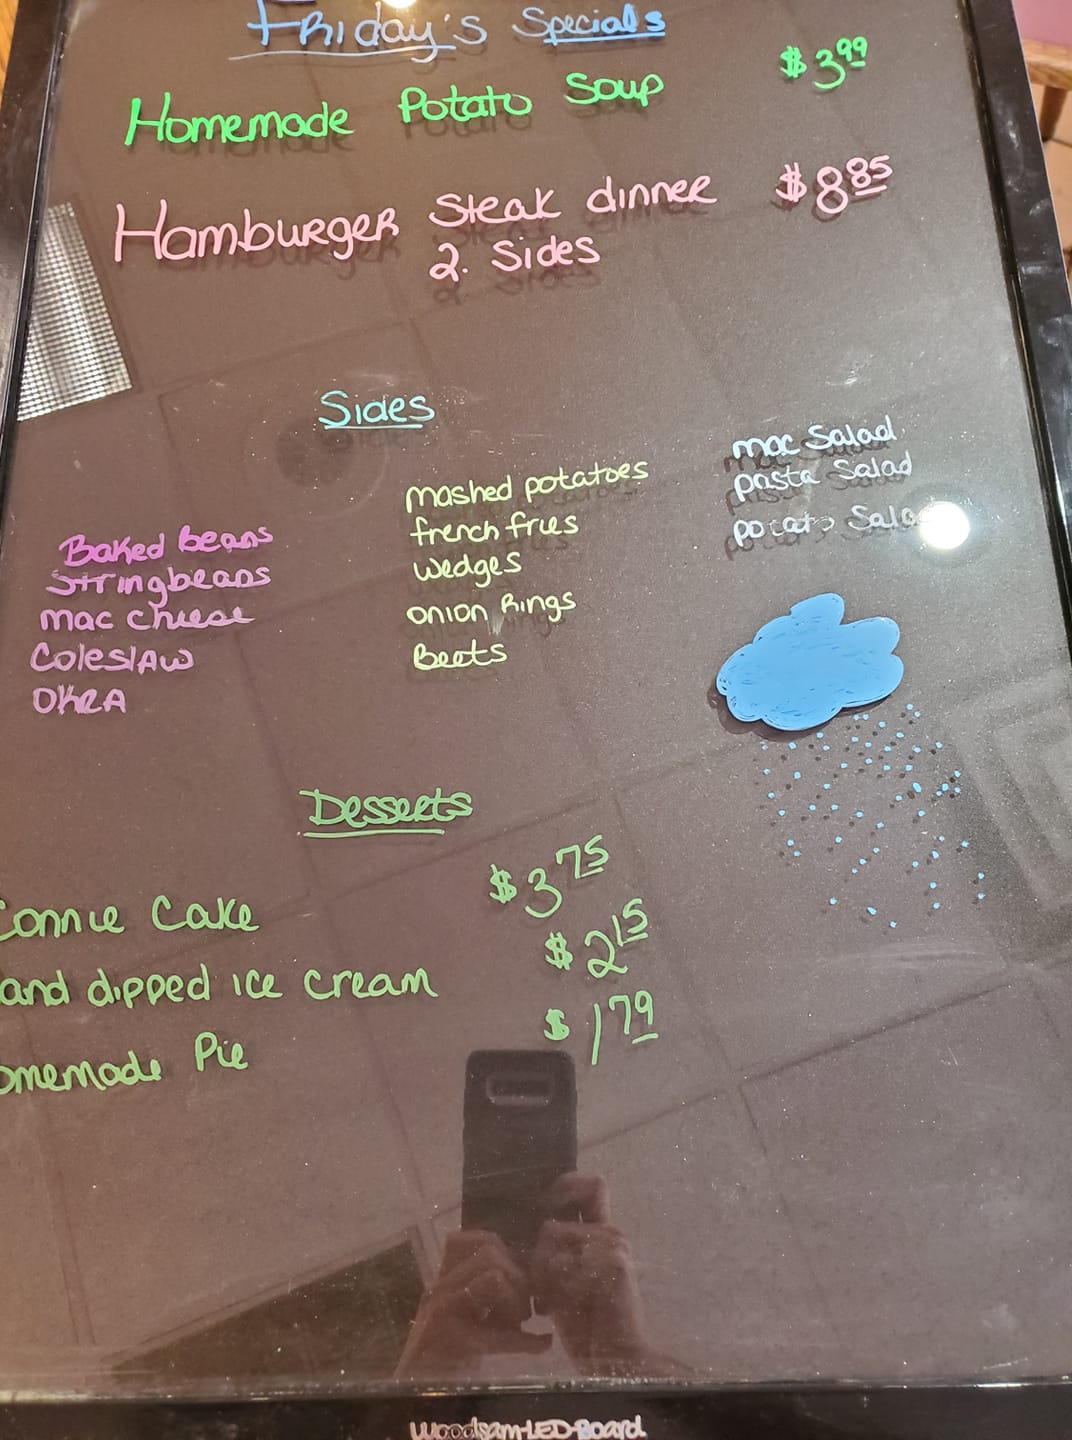 Friday's Specials
Homemade Potato Soup $3.99
Hamburger Steak dinner $8.85
2. Sides
Sides
Baked beans
Stringbeans
mac cheese
Coleslaw
Okra
mashed potatoes
french fries
wedges
onion Rings
Beets
mac Salad
pasta Salad
potato Sala
Desserts
Connie Cake $3.75
and dipped ice cream $2.15
omemade Pie $1.79
Woodsam-LED-Board